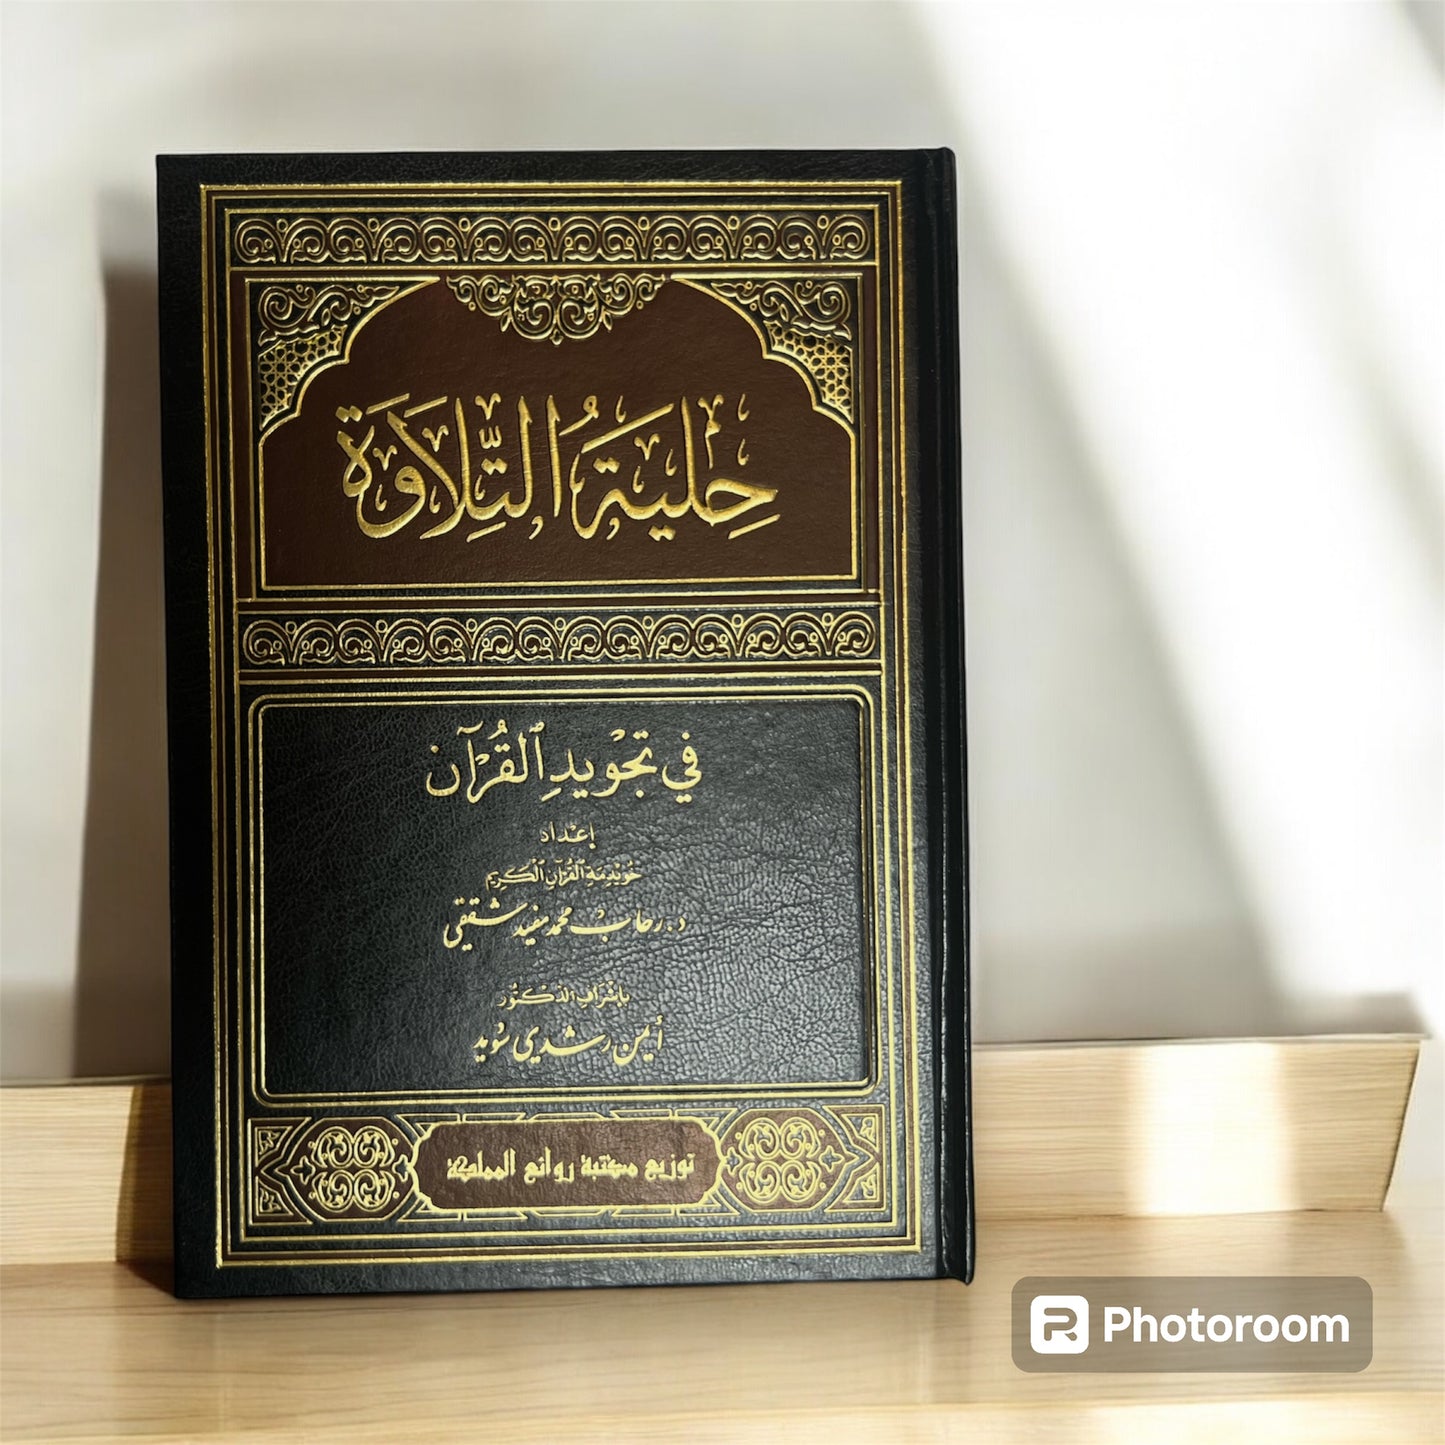 حِلْيَةُ التِّلَاوَة
في تجْوِيدِ ٱلقُرْآن
إعْدَاد
خُوَيْدِمَةِ ٱلقُرْآنِ ٱلْكَرِيم
د. رحاب محمد مفيد شققي
بإشْرَافِ الدّكتُور
أيمن رشدي سُوَيْد
توزيع مكتبة روائع المملكة
Photoroom